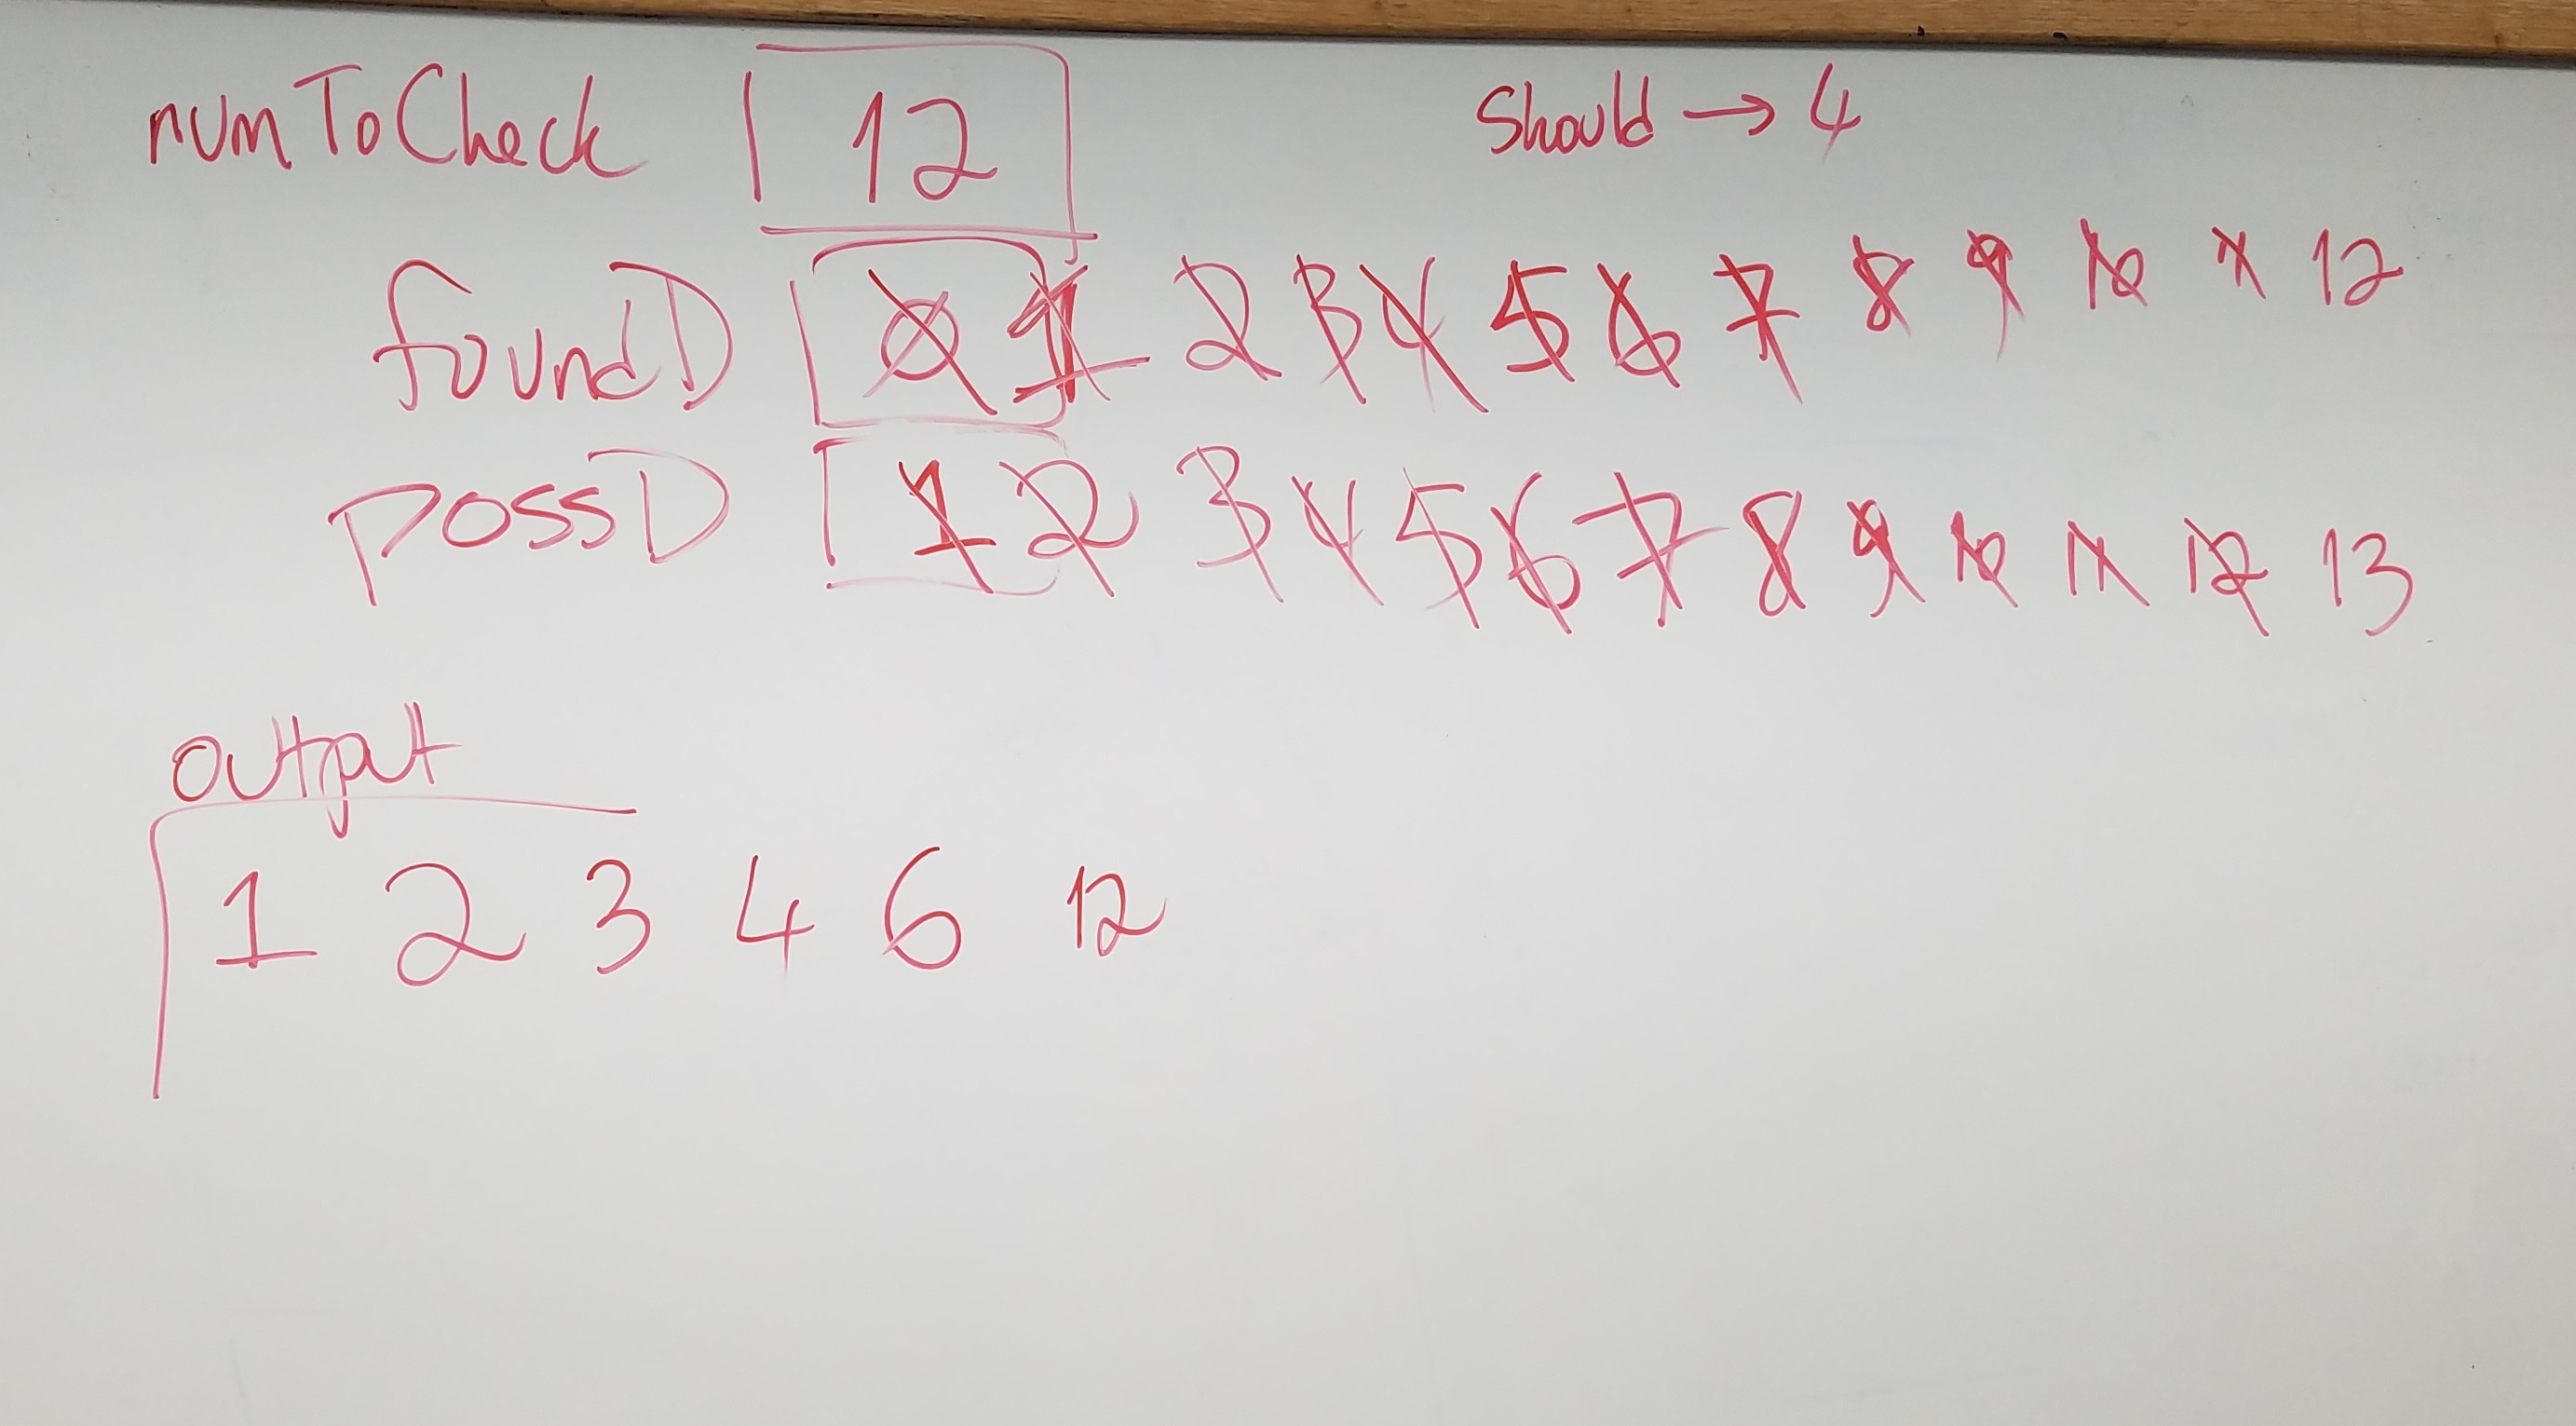 numToCheck 12 Should → 4
foundD 0 1 2 3 4 5 6 7 8 9 10 11 12
possD 1 2 3 4 5 6 7 8 9 10 11 12 13
output
1 2 3 4 6 12